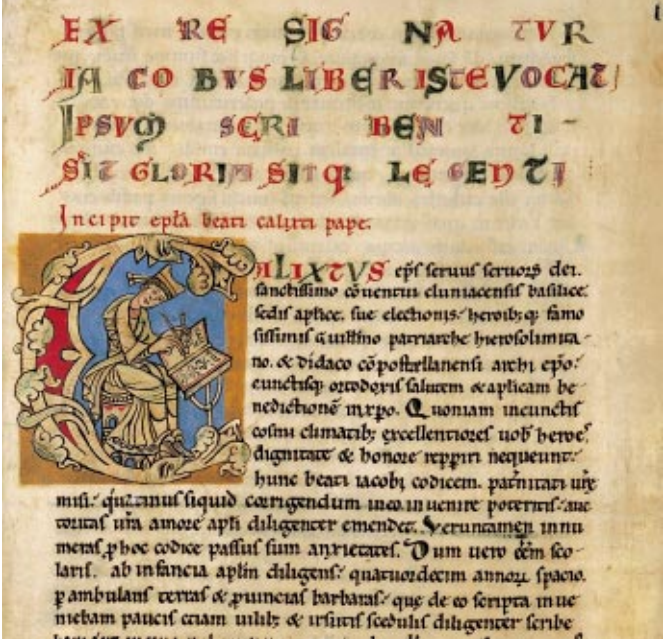 EX RE SIG NA TVR
IACOBVS LIBER ISTE VOCAT
IPSVM SCRIBENTI-
SIT GLORIA SITQ; LEGENTI
Incipit epła beati calixti pape.
CALIXTVS ep̄s seruus seruoꝝ dei.
sanctissimo cōuentui cluniacensis basilice.
sedis aplice. sue electionis. heroibꝰ qꝫ famo
sissimis guillmo patriarche hierosolimita
no. & didaco cōpostellanensi archi ep̄o.
cunctisqꝫ ortodoxis salutem & aplicam be
nedictionē in xp̄o. Quoniam in cunctis
cosmi climatibꝫ excellentiores uobis heroeſ
dignitate & honore repperiri nequeunt.
hunc beati iacobi codicem. pat̄nitati ur̄e
misi. quatinus siquid corrigendum in eo inuenire poteritis. auc
toritas ur̄a amore apl̄i diligenter emendet. Veruntamen innu
meras ꝓ hoc codice passus sum anxietates. Dum uero eēm sco
laris. ab infancia apl̄m diligens. quatuordecim annoꝝ spacio.
ꝑambulans terras & ꝓuincias barbaras. que de eo scripta inue
niebam paucis etiam uilibꝫ & irsutis scedulis diligenter scribe